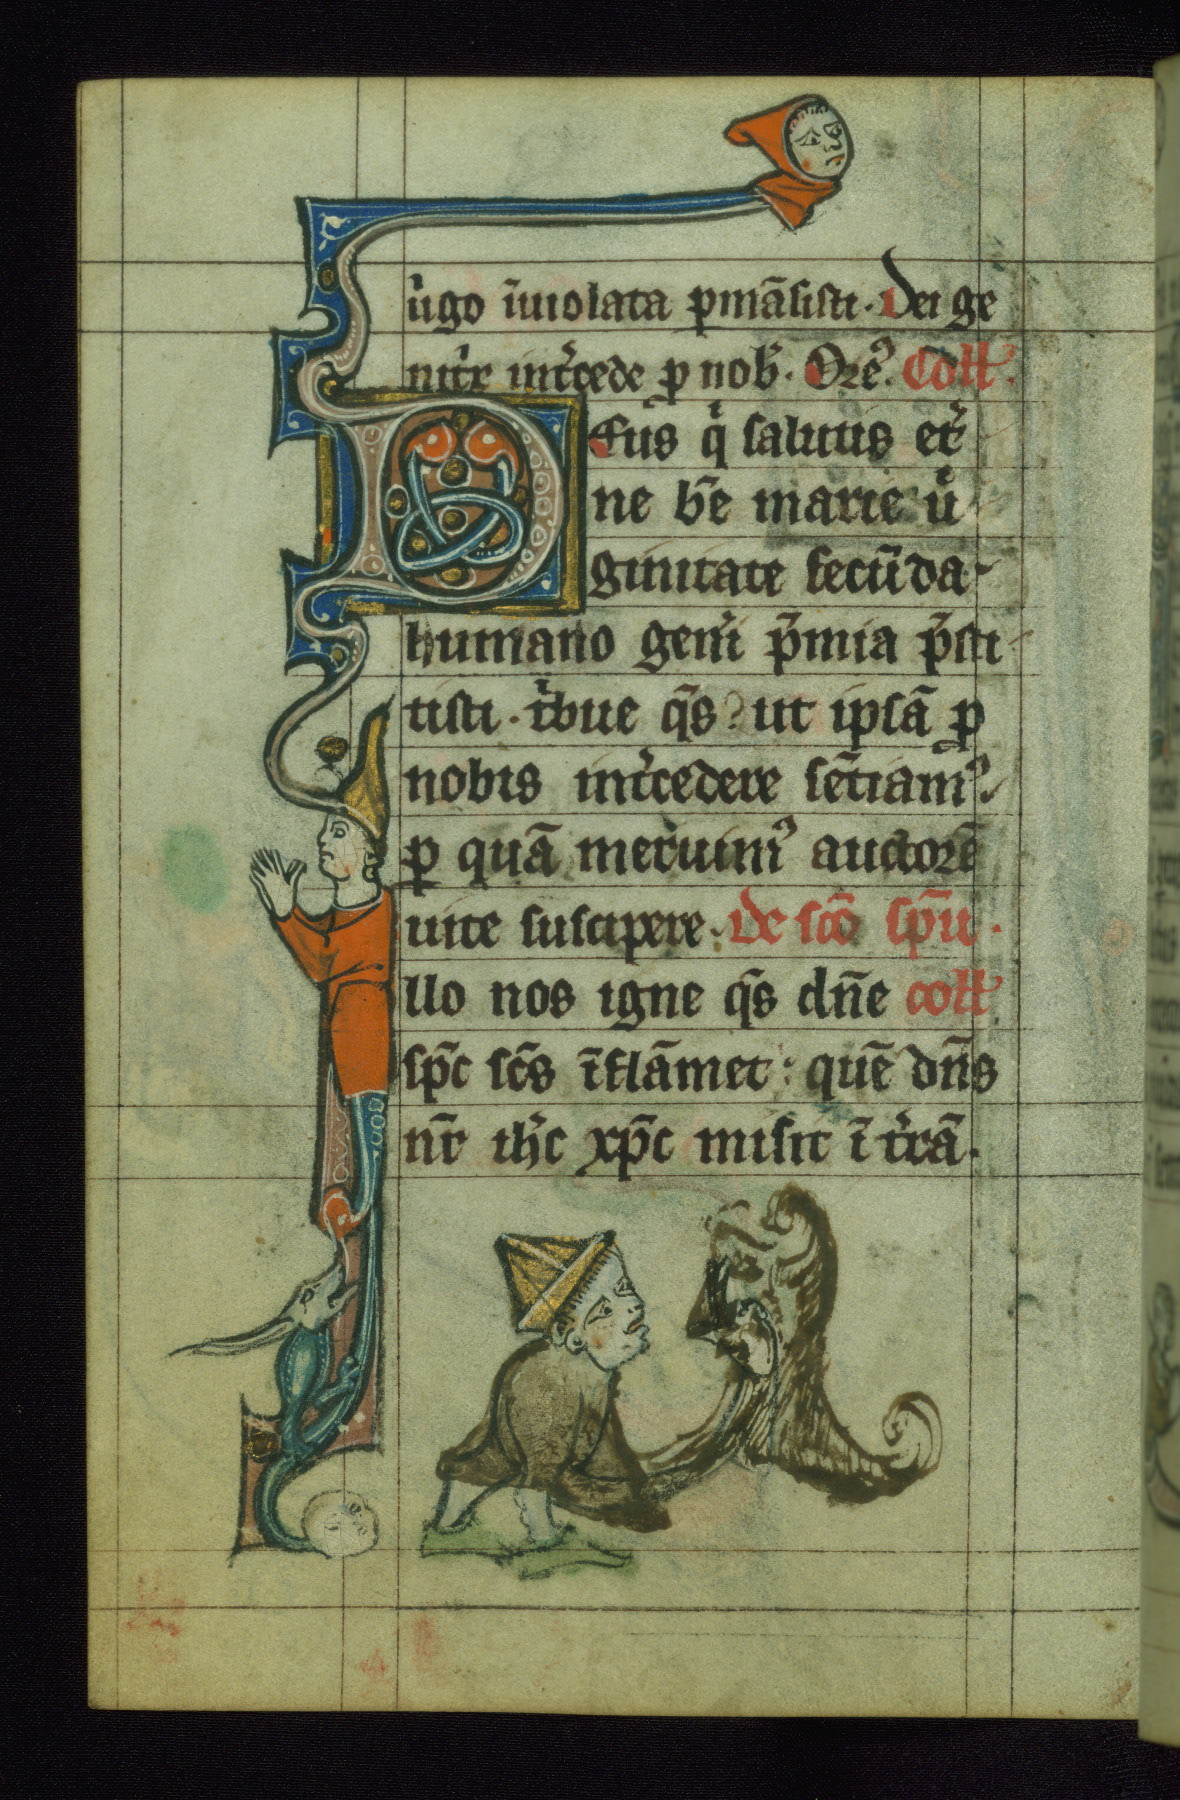 u̍go īuıolata ꝑmāsisti. Dei ge
nitͥx int̾cede ꝓ nob̾. Ore᷒̄. Coll̵.
Eus qͥ salutis et̾
ne bē̄ marie uͥ
ginitate fecūda
humano gen̾i p̄mia p̄sti
tisti. tͥbue q̄s? ut ipsā ꝓ
nobis int̾cedere sētiam᷒
ꝑ quā meruim᷒ auctorē
uite suscipere. de sc̄o sp̄u.
llo nos igne q̄s dn̄e coll̵
sp̄c sc̄s īflāmet: quē dn̄s
nr̄ ih̄c xp̄c misit ī t̾rā.